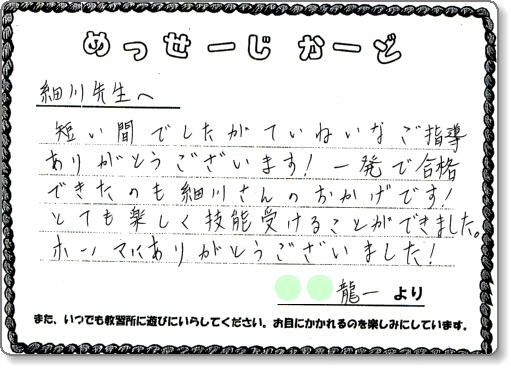 めっせーじ かーど
細川先生へ
短い間でしたがていねいなご指導
ありがとうございます！一発で合格
できたのも細川さんのおかげです！
とても楽しく技能受けることができました。
ホンマにありがとうございました！
龍一 より
また、いつでも教習所に遊びにいらしてください。お目にかかれるのを楽しみにしています。